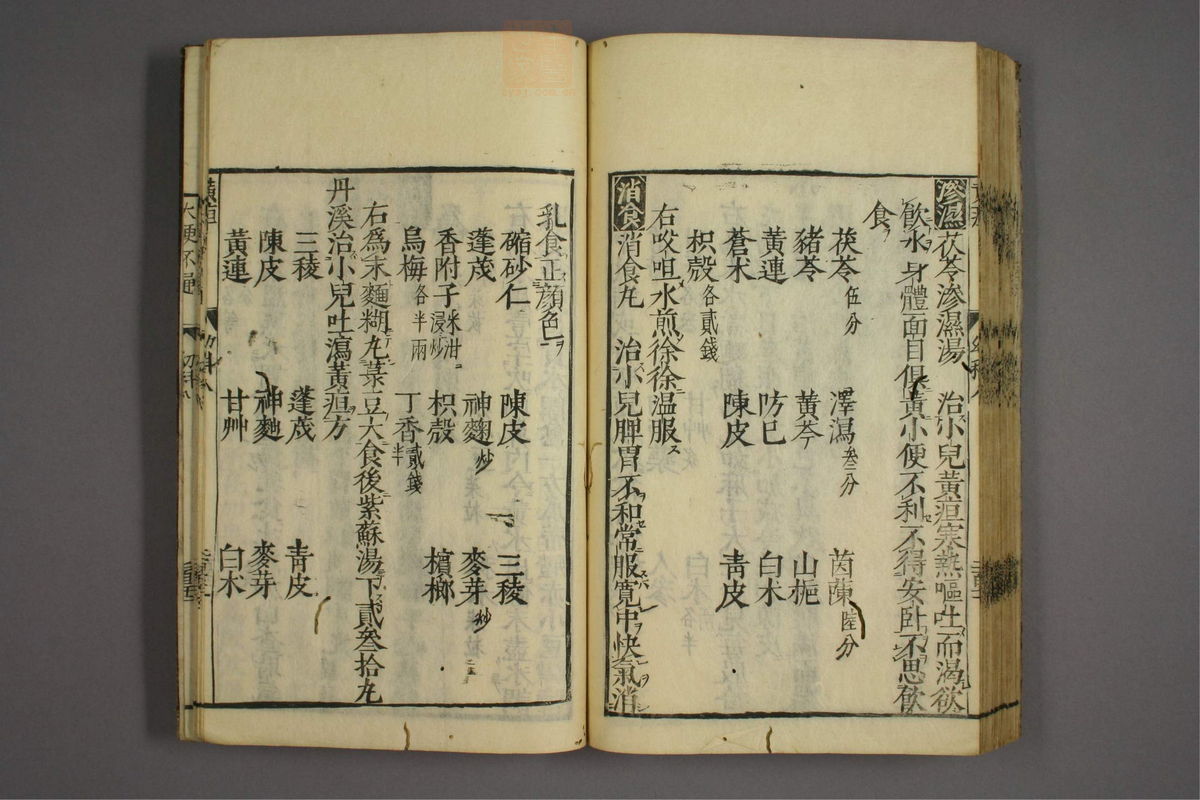 滲濕 茯苓滲濕湯 治小兒黃疸寒熱嘔吐而渴欲
飲水身體面目俱黃小便不利不得安卧不思飲
食
茯苓伍分 澤瀉叁分 茵蔯陸分
豬苓 黃芩 山梔
黃連 防已 白朮
蒼朮 陳皮 靑皮
枳殼各貳錢
右㕮咀水煎徐徐温服
消食 消食丸 治小兒脾胃不和常服寬中快氣消
乳食正顏色
縮砂仁 陳皮 三稜
蓬茂 神麴炒 麥芽炒
香附子米泔浸炒 枳殼 檳榔
烏梅各半兩 丁香貳錢半
右爲末麵糊丸菉豆大食後紫蘇湯下貳叁拾丸
丹溪治小兒吐瀉黃疸方
三稜 蓬茂 靑皮
陳皮 神麯 麥芽
黃連 甘艸 白朮
黃疸
大便不通